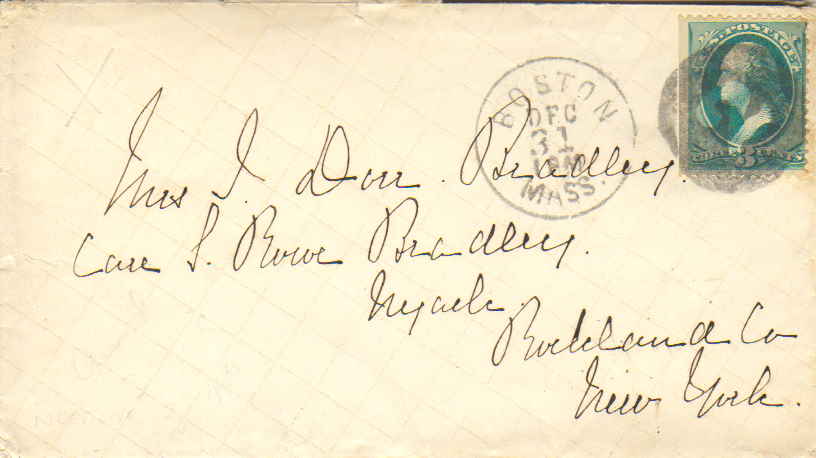 BOSTON
DEC
31
MASS.
U.S. POSTAGE
3 CENTS
Mrs J. Dorr Bradley.
Care S. Rowe Bradley.
Nyack
Rockland Co
New York.